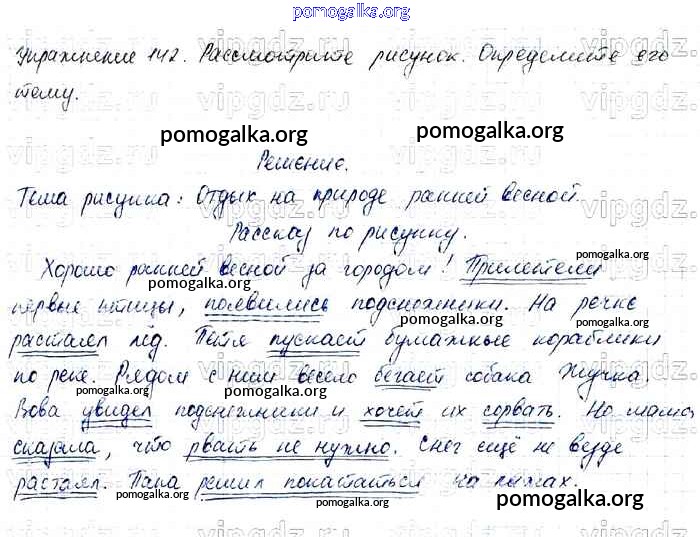 pomogalka.org
Упражнение 142. Рассмотрите рисунок. Определите его
тему.
vipgdz.ru
pomogalka.org pomogalka.org
Решение.
Тема рисунка: Отдых на природе ранней весной.
Рассказ по рисунку.
pomogalka.org
Хорошо ранней весной за городом! Прилетели
pomogalka.org
первые птицы, появились подснежники. На речке
pomogalka.org
растаял лёд. Петя пускает бумажные кораблики
по реке. Рядом с ним весело бегает собака Жучка.
pomogalka.org
Вова увидел подснежники и хочет их сорвать. Но мама
сказала, что рвать не нужно. Снег ещё не везде
растаял. Папа решил покататься на лыжах.
pomogalka.org pomogalka.org pomogalka.org